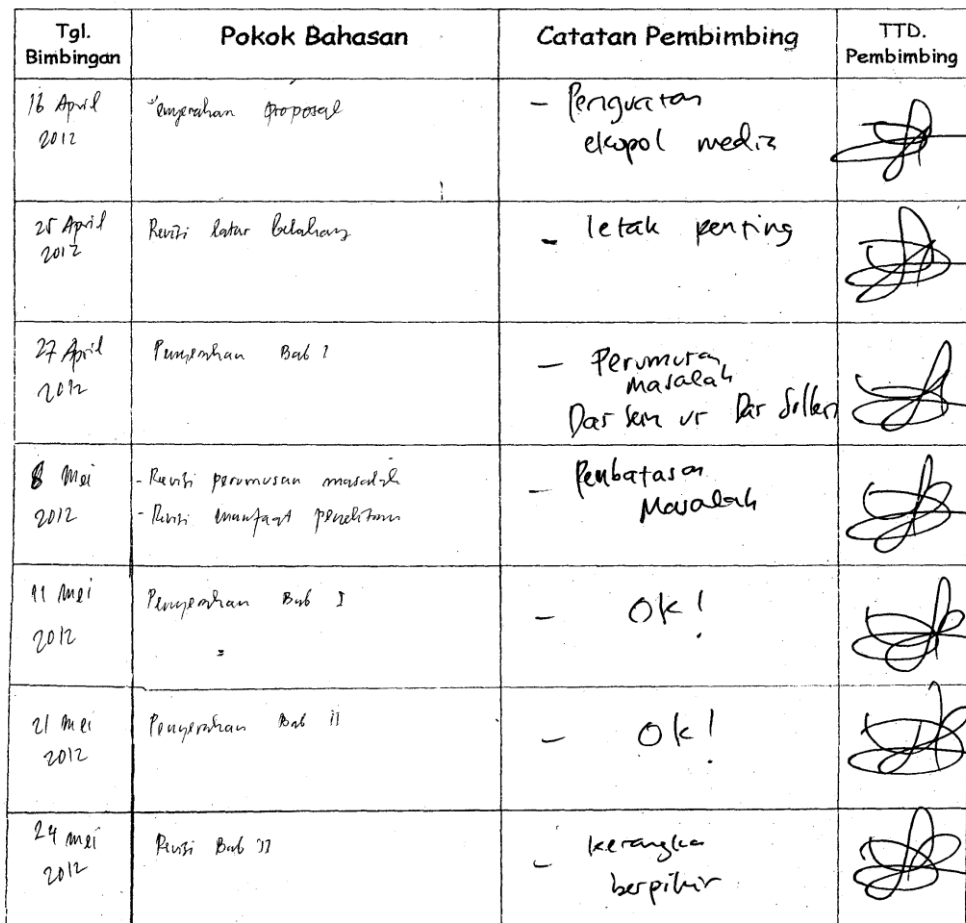 Tgl. Bimbingan Pokok Bahasan Catatan Pembimbing TTD. Pembimbing
16 April 2012 Penyerahan proposal - Penguatan
ekopol media
25 April 2012 Revisi latar belakang - letak penting
27 April 2012 Penyerahan Bab I - Perumusan
masalah
Das Sein vs Das Sollen
8 Mei 2012 - Revisi perumusan masalah
- Revisi manfaat penelitian - Pembatasan
Masalah
11 Mei 2012 Penyerahan Bab I - Ok!
21 Mei 2012 Penyerahan Bab II - Ok!
24 Mei 2012 Revisi Bab II - kerangka
berpikir